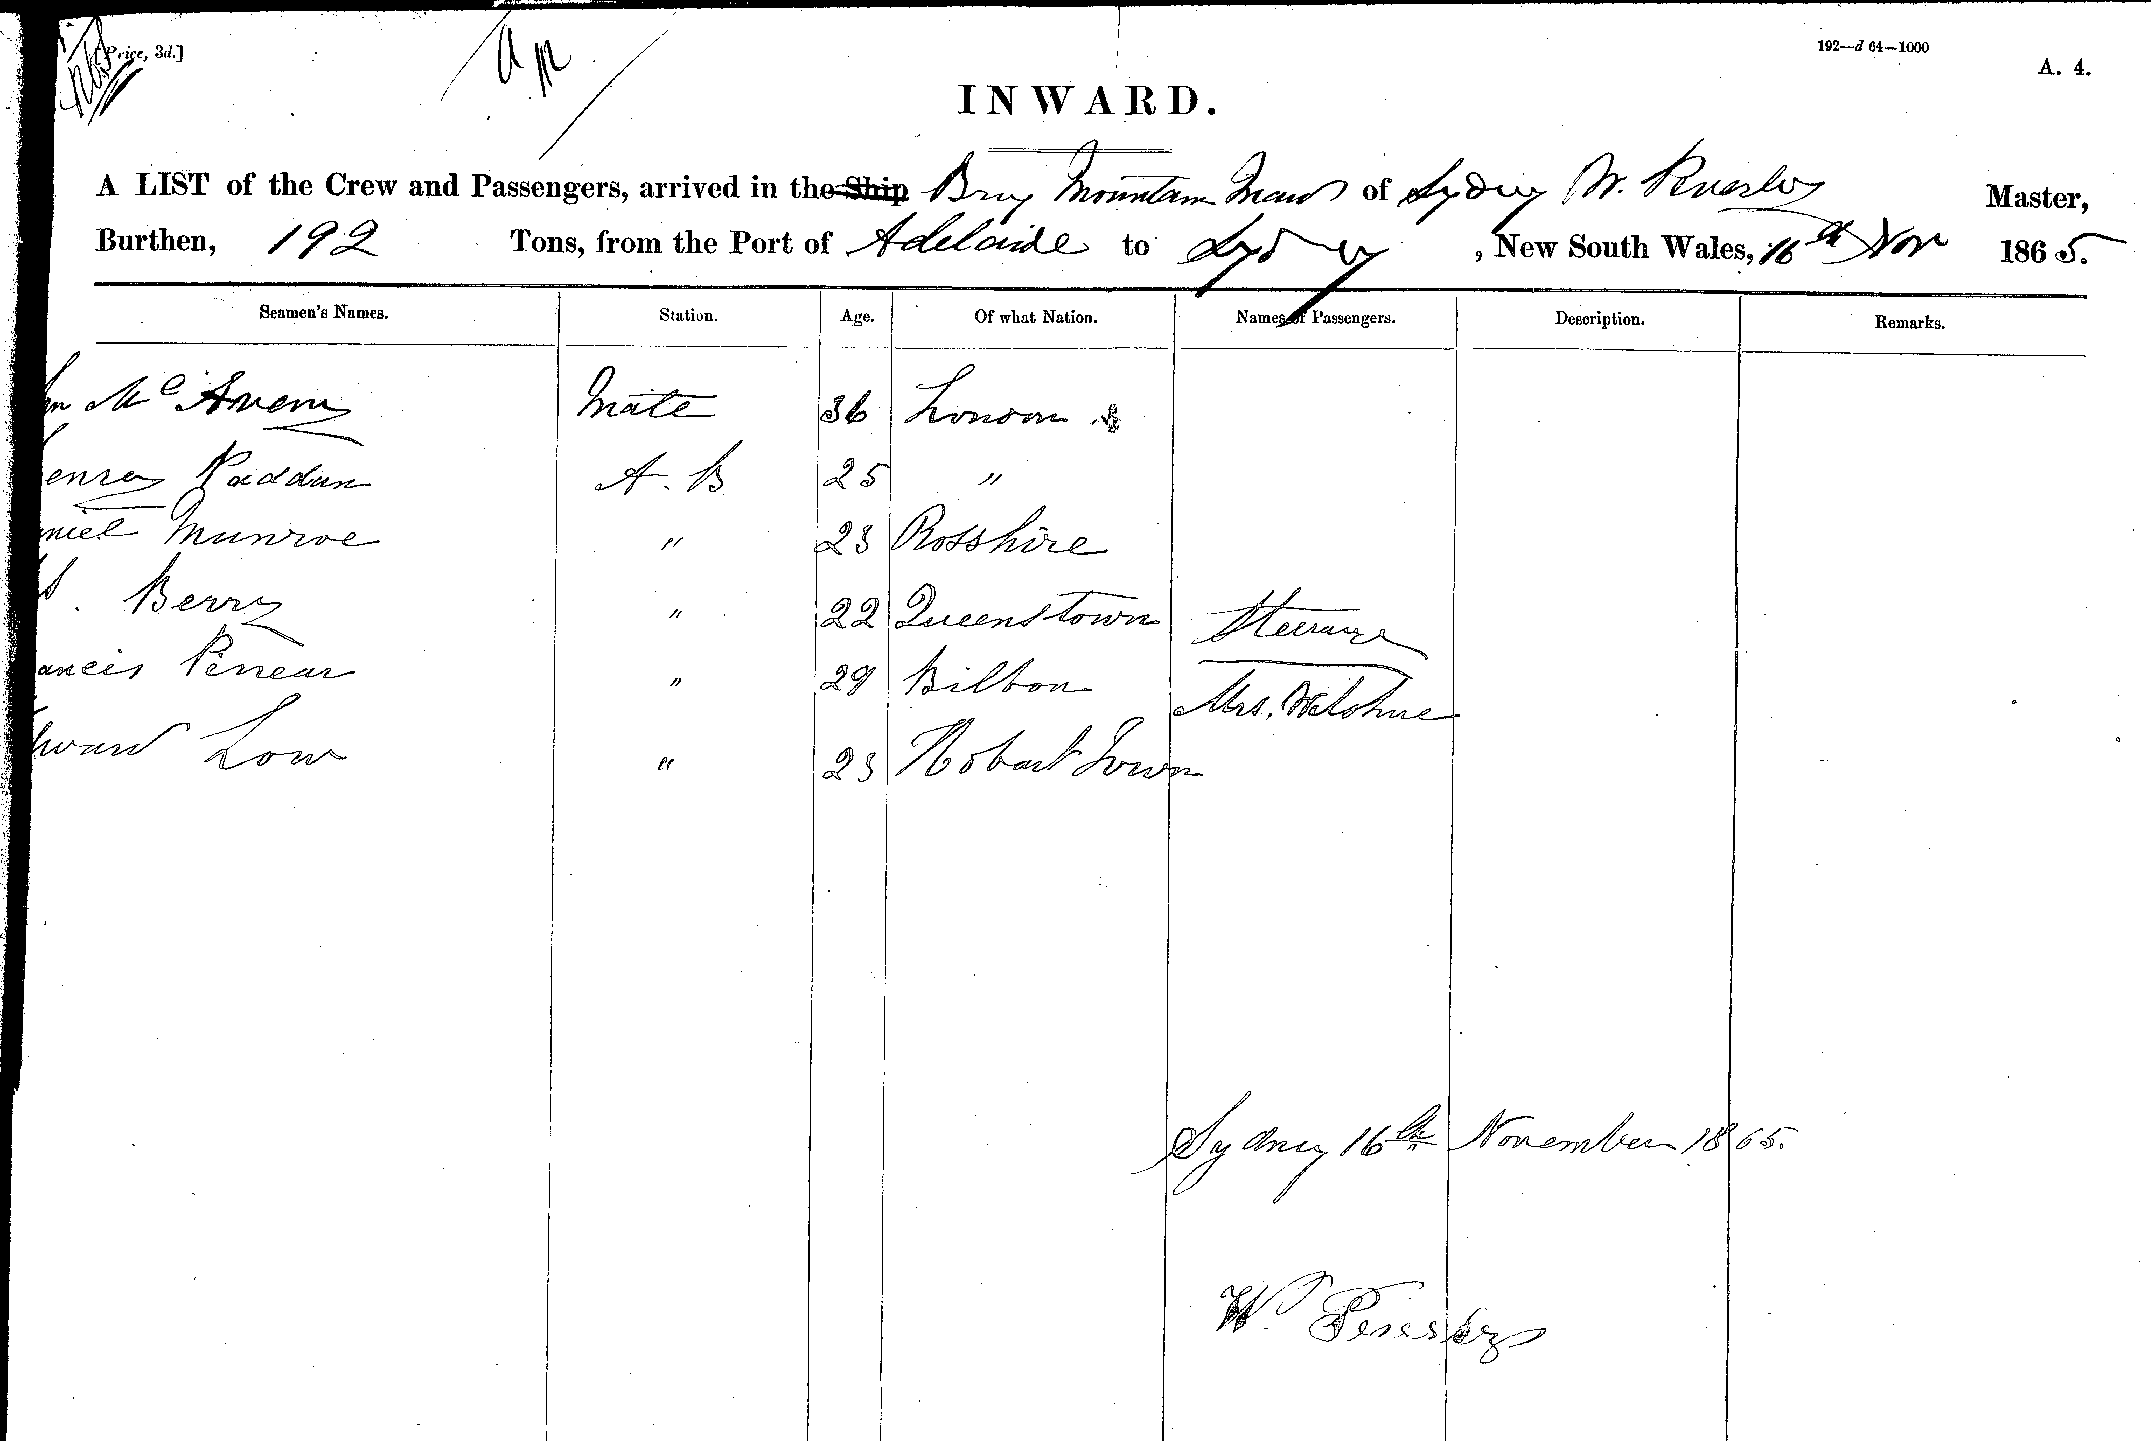 Price, 3d.]
192—d 64—1000
A. 4.
INWARD.
A LIST of the Crew and Passengers, arrived in the Ship Brig Mountain Maid of Sydney W. Master,
Burthen, 192 Tons, from the Port of Adelaide to Sydney, New South Wales, 16th Nov 1865.
Seamen's Names. Station. Age. Of what Nation. Names of Passengers. Description. Remarks.
Mc Mate 36 London
enry Paddun A. B 25 "
niel Munroe " 23 Rosshire
Berry " 22 Queenstown Steerage
ancis " 29 Bilboa Mrs.
dward Low " 23 Hobart Town
Sydney 16th November 1865.
Wm